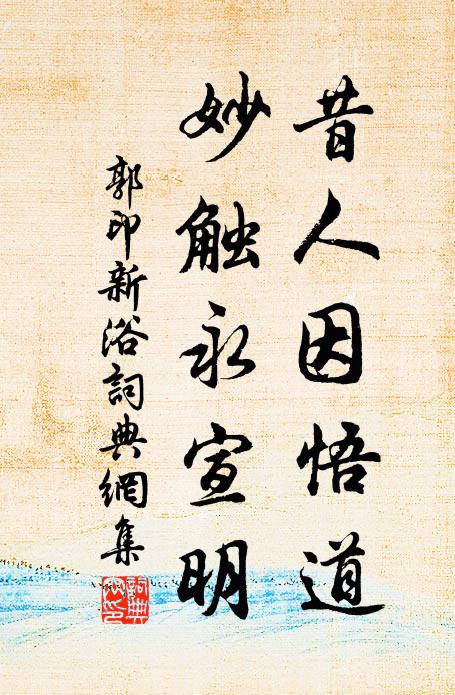 昔人因悟道
妙触永宣明
郭印新浴詞典網集
詞典